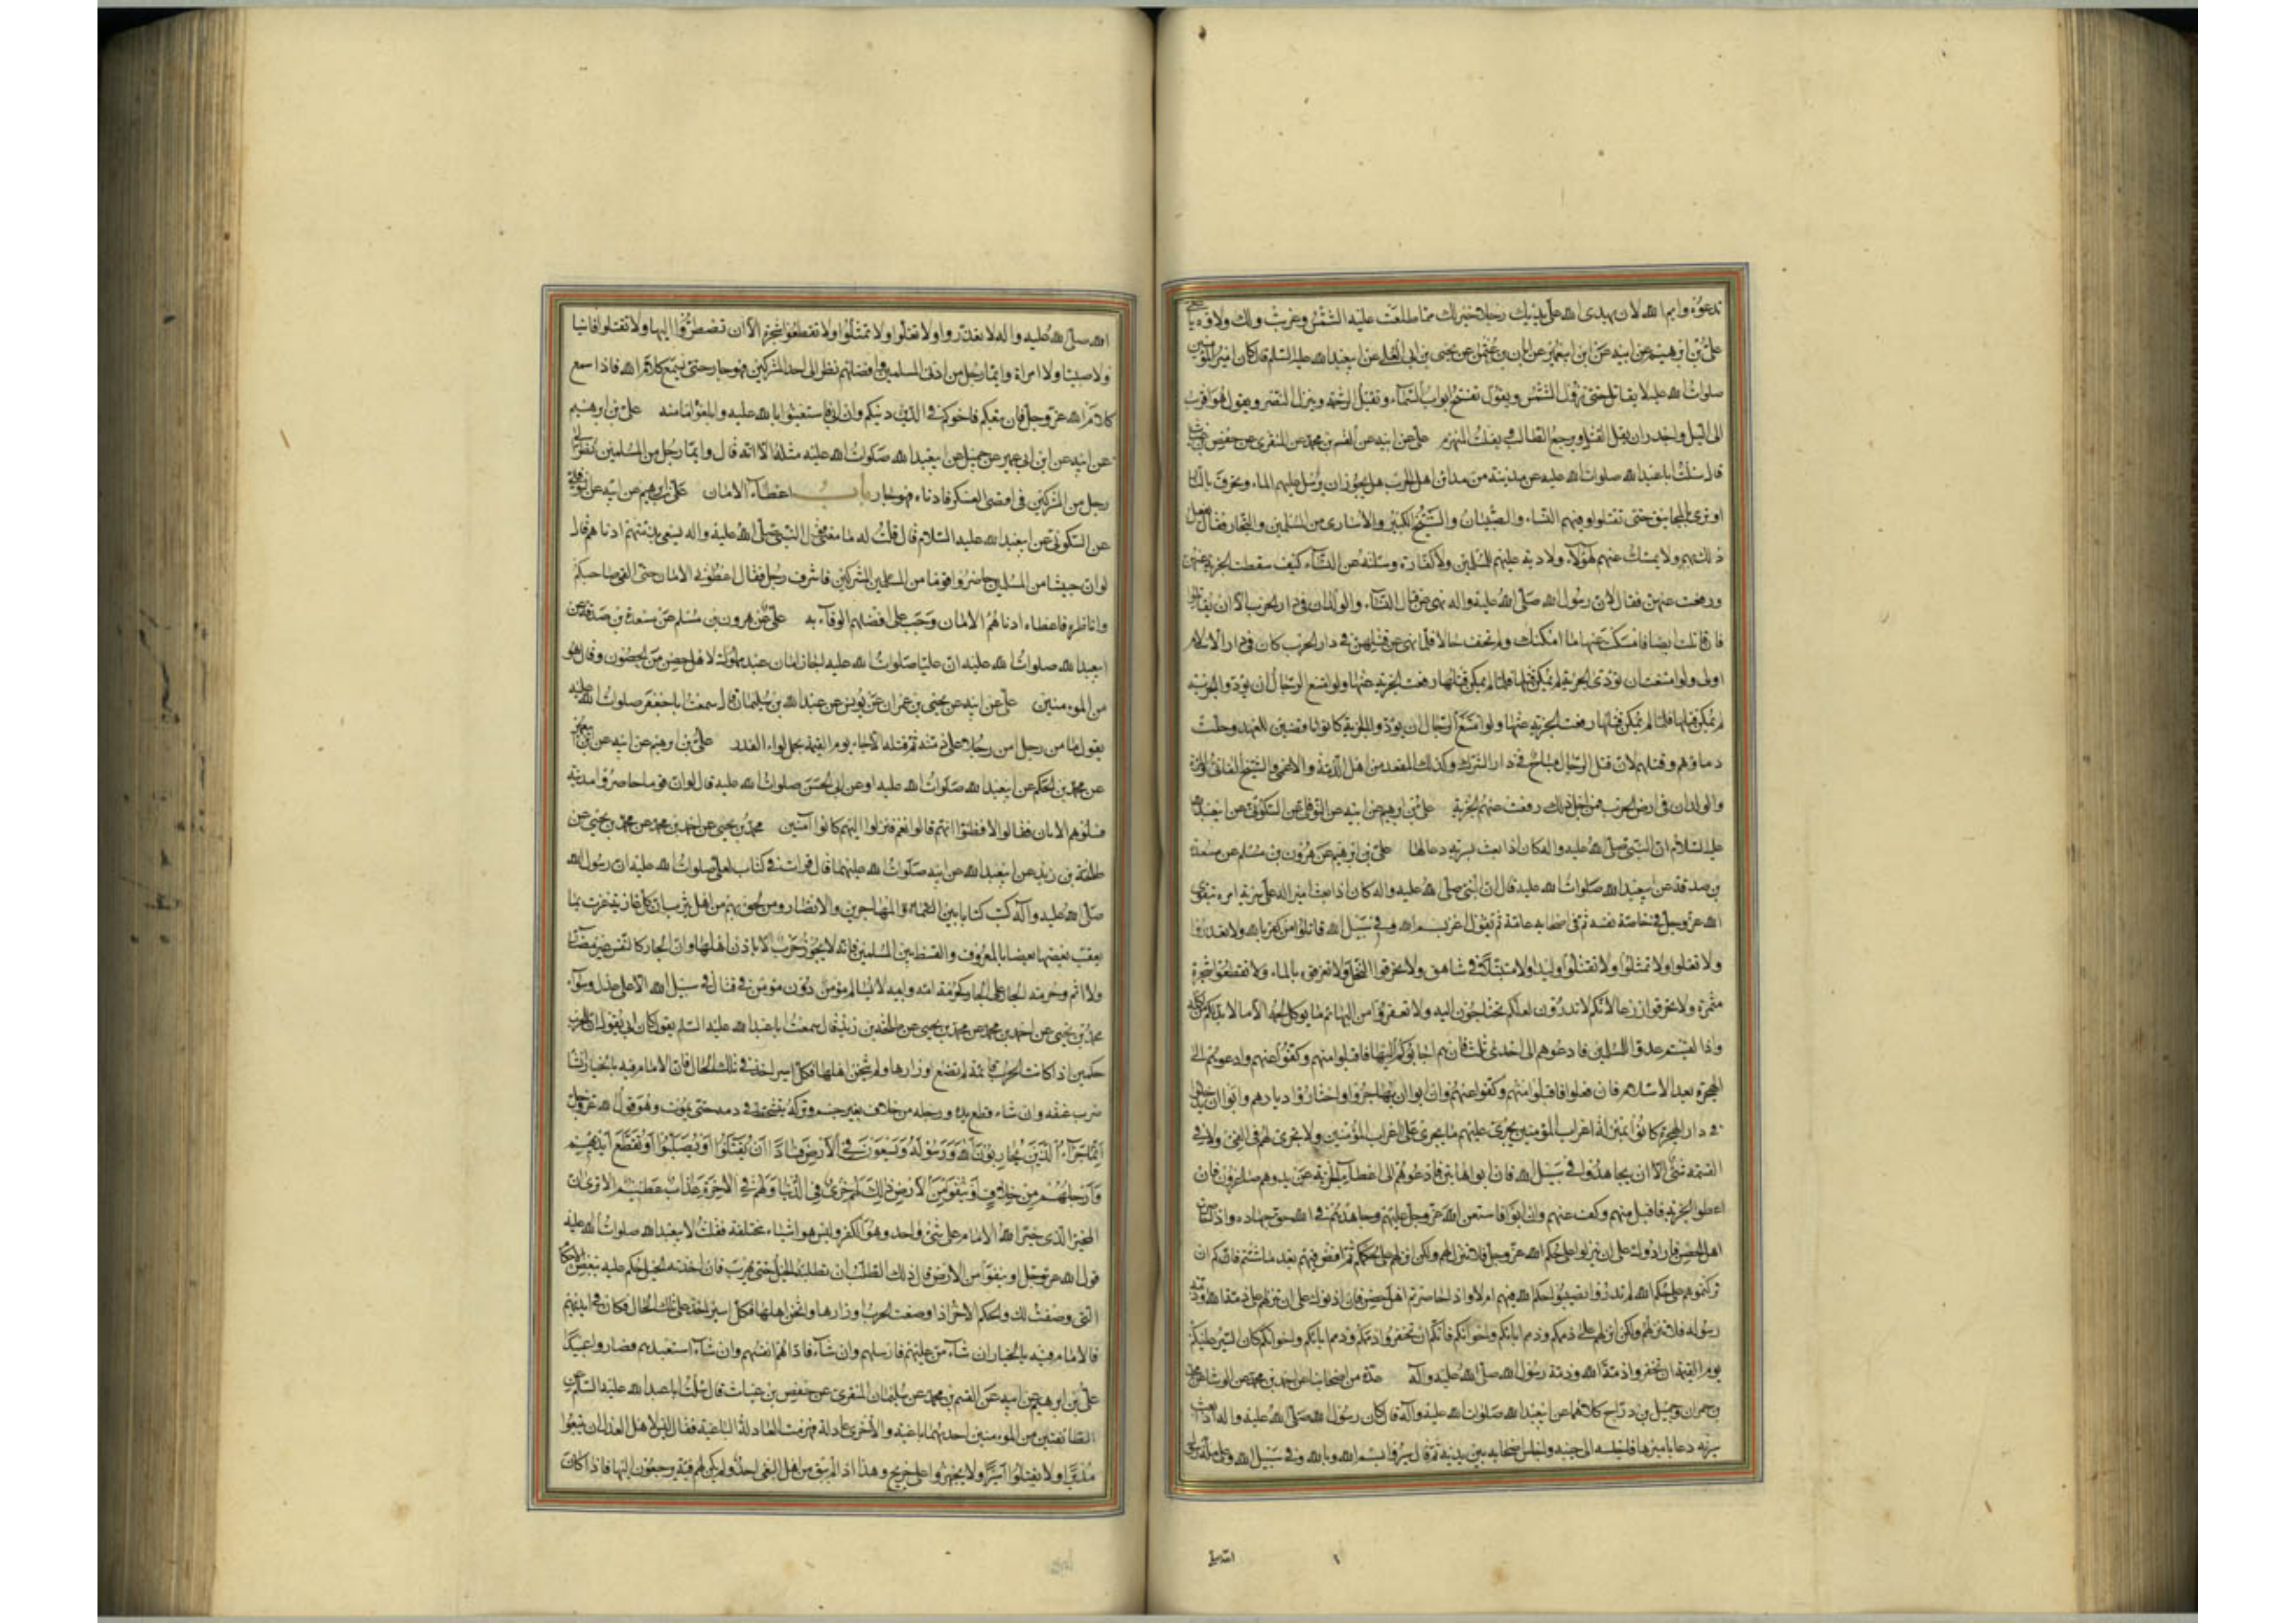 تدعوه وايم الله لان يهدى الله على يديك رجلا خير لك مما طلعت عليه الشمس وغربت ولك ولاؤه يا على
على بن ابرهيم عن ابيه عن ابن ابى عمير عن ابان بن عثمن عن يحيى بن ابى العلاء عن ابيعبدالله عليه السلم قال كان امير المؤمنين
صلوات الله عليه لا يقاتل حتى تزول الشمس ويقول تفتح ابواب السماء وتقبل الرحمة وينزل النصر ويقول هو اقرب
الى الليل واجدر ان يقل القتل ويرجع الطالب ويفلت المنهزم على عن ابيه عن القسم بن محمد عن المنقرى عن حفص بن غياث
قال سئلت اباعبدالله صلوات الله عليه عن مدينة من مداين اهل الحرب هل يجوز ان يرسل عليهم الماء وتحرق بالنار
او ترمى بالمجانيق حتى تقتلوا وفيهم النساء والصبيان والشيخ الكبير والاسارى من المسلمين والتجار فقال يفعل
ذلك بهم ولا يمسك عنهم لهؤلاء ولا دية عليهم للمسلمين ولا كفارة وسئلته عن النساء كيف سقطت الجزية عنهن
ورفعت عنهن فقال لان رسول الله صلى الله عليه واله نهى عن قتال النساء والولدان فى دار الحرب الا ان يقاتلوا
فان قاتلت ايضا فامسك عنها ما امكنك ولم تخف خالا فلما نهى عن قتلهن فى دار الحرب كان فى دار الاسلام
اولى ولو امتنعت ان تؤدى الجزية لم يمكن قتلها فلما لم يمكن قتلها رفعت الجزية عنها ولو امتنع الرجال ان يؤدوا الجزية
لم يمكن قتلها فلما لم يمكن قتلها رفعت الجزية عنها ولو امتنع الرجال ان يؤدوا الجزية كانوا ناقضين للعهد وحلت
دماؤهم وقتلهم لان قتل الرجال مباح فى دار الشرك وكذلك المقعد من اهل الذمة والاعمى والشيخ الفانى والمراة
والولدان فى ارض الحرب فمن اجل ذلك رفعت عنهم الجزية على بن ابرهيم عن ابيه عن النوفلى عن السكونى عن ابيعبدالله
عليه السلام ان النبى صلى الله عليه واله كان اذا بعث بسرية دعا لها على بن ابرهيم عن هرون بن مسلم عن مسعدة
بن صدقة عن ابيعبدالله صلوات الله عليه قال ان النبى صلى الله عليه واله كان اذا بعث اميرا له على سرية امره بتقوى
الله عز وجل فى خاصة نفسه ثم فى اصحابه عامة ثم يقول اغز بسم الله وفى سبيل الله قاتلوا من كفر بالله ولا تغدروا
ولا تغلوا ولا تمثلوا ولا تقتلوا وليدا ولا متبتلا فى شاهق ولا تحرقوا النخل ولا تغرقوه بالماء ولا تقطعوا شجرة
مثمرة ولا تحرقوا زرعا لانكم لا تدرون لعلكم تحتاجون اليه ولا تعقروا من البهائم ما يوكل لحمه الا ما لابد لكم من اكله
واذا لقيتم عدوا للمسلمين فادعوهم الى احدى ثلث فان هم اجابوكم اليها فاقبلوا منهم وكفوا عنهم وادعوهم الى
الهجرة بعد الاسلام فان فعلوا فاقبلوا منهم وكفوا عنهم وان ابوا ان يهاجروا واختاروا ديارهم وابوا ان يدخلوا
فى دار الهجرة كانوا بمنزلة اعراب المؤمنين يجرى عليهم ما يجرى على اعراب المؤمنين ولا يجرى لهم فى الفئ ولا فى
القسمة شئ الا ان يجاهدوا فى سبيل الله فان ابوا هاتين فادعوهم الى اعطاء الجزية عن يد وهم صاغرون فان
اعطوا الجزية فاقبل منهم وكف عنهم وان ابوا فاستعن الله عز وجل عليهم وجاهدهم فى الله حق جهاده واذا حاصرت
اهل الحصن فارادوك على ان ينزلوا على حكم الله عز وجل فلا تنزل لهم ولكن انزلهم على حكمكم ثم اقض فيهم بعد ما شئتم فانكم ان
تركتموهم على حكم الله لم تدروا تصيبوا حكم الله فيهم ام لا واذا حاصرتم اهل حصن فان اذنوك على ان تنزلهم على ذمة الله وذمة
رسوله فلا تنزلهم ولكن انزلهم على ذممكم وذمم ابائكم واخوانكم فانكم ان تخفروا ذممكم وذمم ابائكم واخوانكم كان ايسر عليكم
يوم القيمة ان تخفروا ذمة الله وذمة رسول الله صلى الله عليه واله عدة من اصحابنا عن احمد بن محمد عن الوشاء عن محمد
بن حمران وجميل بن دراج كلاهما عن ابيعبدالله صلوات الله عليه واله قال كان رسول الله صلى الله عليه واله اذا بعث
سرية دعا باميرها فاجلسه الى جنبه واجلس اصحابه بين يديه ثم قال سيروا بسم الله وبالله وفى سبيل الله وعلى ملة رسول
الله صلى الله عليه واله لا تغدروا ولا تغلوا ولا تمثلوا ولا تقطعوا شجرة الا ان تضطروا اليها ولا تقتلوا فانيا
ولا صبيا ولا امراة وايما رجل من ادنى المسلمين وافضلهم نظر الى احد المشركين فهو جار حتى يسمع كلام الله فاذا سمع
كلام الله عز وجل فان تبعكم فاخوكم فى الدين دينكم وان ابى فاستعينوا بالله عليه وابلغوه مامنه على بن ابرهيم
عن ابيه عن ابن ابى عمير عن جميل عن ابيعبدالله صلوات الله عليه مثله الا انه قال وايما رجل من المسلمين نظر الى
رجل من المشركين فى اقصى العسكر فادناه فهو جار باب اعطاء الامان على بن ابرهيم عن ابيه عن النوفلى
عن السكونى عن ابيعبدالله عليه السلام قال قلت له ما معنى قول النبى صلى الله عليه واله يسعى بذمتهم ادناهم قال
لو ان جيشا من المسلمين حاصروا قوما من المشركين فاشرف رجل فقال اعطونى الامان حتى القى صاحبكم
واناظره فاعطاه ادناهم الامان وجب على افضلهم الوفاء به على عن هرون بن مسلم عن مسعدة بن صدقة عن
ابيعبدالله صلوات الله عليه ان عليا صلوات الله عليه اجاز امان عبد مملوك لاهل حصن من الحصون وقال هو
من المومنين على عن ابيه عن يحيى بن عمران عن يونس عن عبدالله بن سليمان قال سمعت اباجعفر صلوات الله عليه
يقول ما من رجل امن رجلا على ذمة ثم قتله الا جاء يوم القيمة يحمل لواء الغدر على بن ابرهيم عن ابيه عن ابن ابى عمير
عن محمد بن الحكم عن ابيعبدالله صلوات الله عليه او عن ابى الحسن صلوات الله عليه قال لو ان قوما حاصروا مدينة
فسئلوهم الامان فقالوا لا فظنوا انهم قالوا نعم فنزلوا اليهم كانوا امنين محمد بن يحيى عن احمد بن محمد عن محمد بن يحيى عن
طلحة بن زيد عن ابيعبدالله عن ابيه صلوات الله عليهما قال قرات فى كتاب لعلى صلوات الله عليه ان رسول الله
صلى الله عليه واله كتب كتابا بين المهاجرين والانصار ومن لحق بهم من اهل يثرب ان كل غازية غزت بما
يعقب بعضها بعضا بالمعروف والقسط بين المسلمين فانه لا يجوز حرب الا باذن اهلها وان الجار كالنفس غير مضار
ولا اثم وحرمة الجار على الجار كحرمة امه وابيه لا يسالم مؤمن دون مؤمن فى قتال فى سبيل الله الا على عدل وسواء
محمد بن يحيى عن احمد بن محمد عن محمد بن يحيى عن طلحة بن زيد قال سمعت اباعبدالله عليه السلم يقول كان ابى يقول ان للحرب
حكمين اذا كانت الحرب قائمة لم تضع اوزارها ولم يثخن اهلها فكل اسير اخذ فى تلك الحال فان الامام فيه بالخيار ان شاء
ضرب عنقه وان شاء قطع يده ورجله من خلاف بغير حسم وتركه يتشحط فى دمه حتى يموت وهو قول الله عز وجل
انما جزاء الذين يحاربون الله ورسوله ويسعون فى الارض فسادا ان يقتلوا او يصلبوا او تقطع ايديهم
وارجلهم من خلاف او ينفوا من الارض ذلك لهم خزى فى الدنيا ولهم فى الاخرة عذاب عظيم الا ترى ان
المخير الذى خير الله الامام على شئ واحد وهو الكفر وليس هو اشياء مختلفة فقلت لابيعبدالله صلوات الله عليه
قول الله عز وجل او ينفوا من الارض قال ذلك الطلب ان تطلبه الخيل حتى يهرب فان اخذته الخيل حكم عليه ببعض الاحكام
التى وصفت لك والحكم الاخر اذا وضعت الحرب اوزارها واثخن اهلها فكل اسير اخذ على تلك الحال فكان فى ايديهم
فالامام فيه بالخيار ان شاء من عليهم فارسلهم وان شاء فاداهم انفسهم وان شاء استعبدهم فصاروا عبيدا
على بن ابرهيم عن ابيه عن القسم بن محمد عن سليمان المنقرى عن حفص بن غياث قال سئلت اباعبدالله عليه السلم عن
الطائفتين من المومنين احديهما باغية والاخرى عادلة فهزمت العادلة الباغية فقال ليس لاهل العدل ان يتبعوا
مدبرا ولا يقتلوا اسيرا ولا يجهزوا على جريح وهذا اذا لم يبق من اهل البغى احد ولم يكن لهم فئة يرجعون اليها فاذا كان